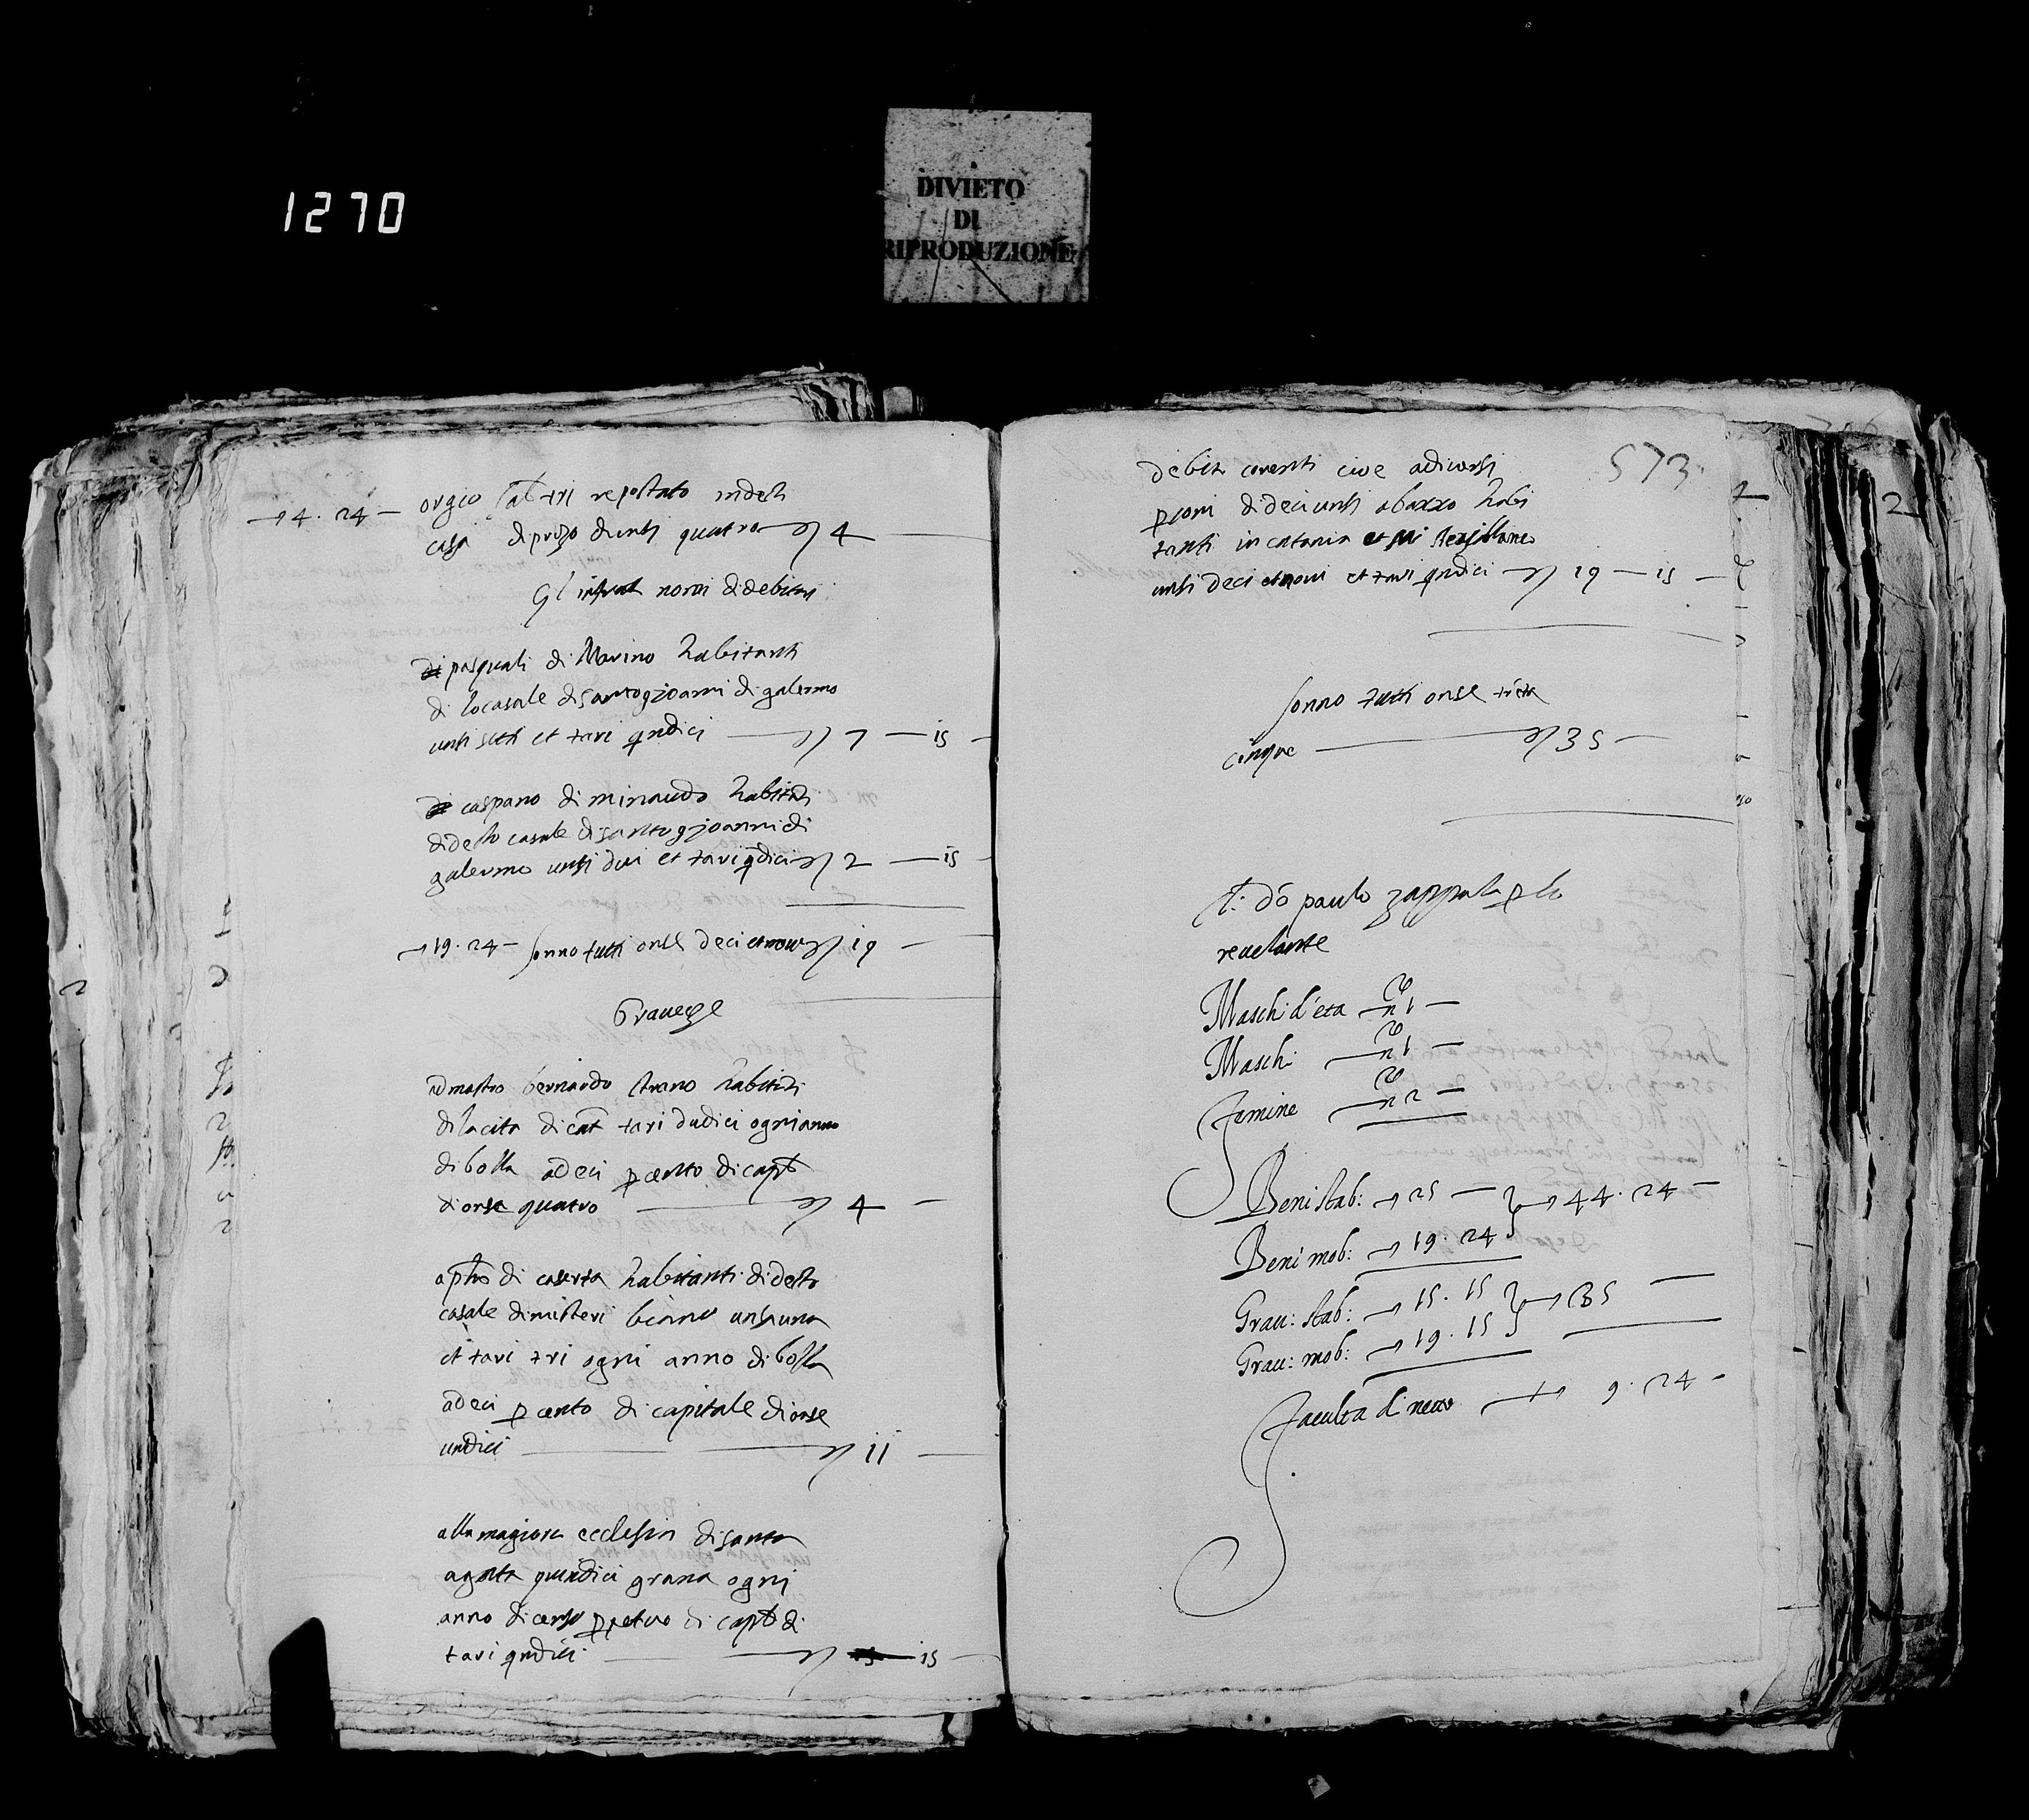 1270
DIVIETO
DI
RIPRODUZIONE
4. 24 orgio salmi repostato in detti
casa di prezo di unti quatro 4
Gl infrati nomi di debitori
pasquali di Marino habitanti
di lo casale di santo gioanni di galermo
unti setti et tari qndici 7 — 15
caspano di minaudo habitati
di detto casale di santo gioanni di
galermo unti dui et tari qdici 2 — 15
19. 24 — sonno tutti onse deci et novi 19
Graueze
ad mastro bernardo strano habitati
di la cita di cat tari dudici ogni anno
di bolla a deci p cento di capt
di onse quatro 4
di caserta habitanti di detto
casale di misteri bianco unsi una
et tari tri ogni anno di bolla
a deci p cento di capitale di onse
undici ii
alla magiore ecclesia di santa
agata quindici grana ogni
anno di censo ppetuo di capt di
tari qndici — 15
573
debiti correnti cioe a diversi
psoni di deci unti a baxxo habi
tanti in catania et
unti deci et novi et tari qndici 19 — 15
sonno tutti onse treta
cinque 35
T: do paulo zappala p lo
revelante
Maschi d'eta n 1
Maschi n 1
Femine n 2
Beni stab: 25 — 44. 24
Beni mob: 19. 24
Grau: stab: 15. 15 35
Grau: mob: 19. 15
Faculta di netto 9. 24